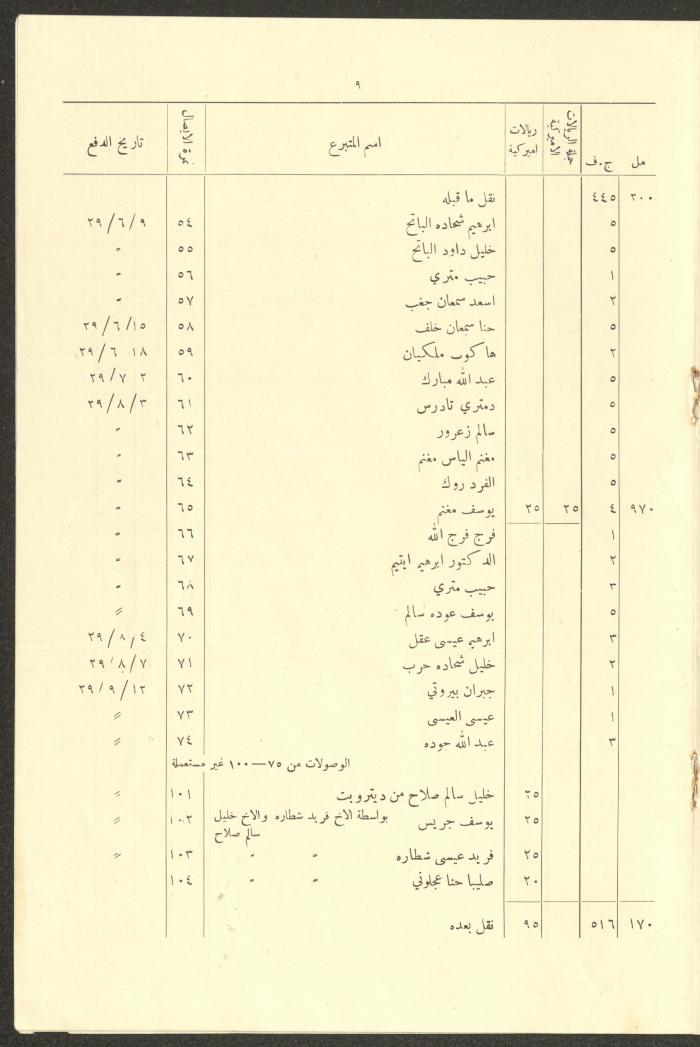 ٩
مل ج.ف جملة الريالات الاميركية ريالات اميركية اسم المتبرع نمرة الايصال تاريخ الدفع
٢٠٠ ٤٤٥ نقل ما قبله
٥ ابرهيم شحاده الباتح ٥٤ ٢٩/٦/٩
٥ خليل داود الباتح ٥٥ "
١ حبيب متري ٥٦ "
٢ اسعد سمعان جغب ٥٧ "
٥ حنا سمعان خلف ٥٨ ٢٩/٦/١٥
٢ هاكوب ملكيان ٥٩ ٢٩/٦ ١٨
٥ عبد الله مبارك ٦٠ ٢٩/٧ ٢
٥ دمتري تادرس ٦١ ٢٩/٨/٣
٥ سالم زعرور ٦٢ "
٥ مغنم الياس مغنم ٦٣ "
٥ الفرد روك ٦٤ "
٩٧٠ ٤ ٢٥ ٢٥ يوسف مغنم ٦٥ "
١ فرج فرج الله ٦٦ "
٢ الدكتور ابرهيم ايتيم ٦٧ "
٣ حبيب متري ٦٨ "
٥ يوسف عوده سالم ٦٩ "
٣ ابرهيم عيسى عقل ٧٠ ٢٩/٨/٤
٢ خليل شحاده حرب ٧١ ٢٩/٨/٧
١ جبران بيروتي ٧٢ ٢٩/٩/١٢
١ عيسى العيسى ٧٣ "
٣ عبد الله حوده ٧٤ "
الوصولات من ٧٥—١٠٠ غير مستعملة
٢٥ خليل سالم صلاح من ديترويت ١٠١ "
٢٥ يوسف جريس بواسطة الاخ فريد شطاره والاخ خليل ١٠٢ "
سالم صلاح
٢٥ فريد عيسى شطاره " " ١٠٣ "
٢٠ صليبا حنا عجلوني " " ١٠٤
١٧٠ ٥١٦ ٩٥ نقل بعده